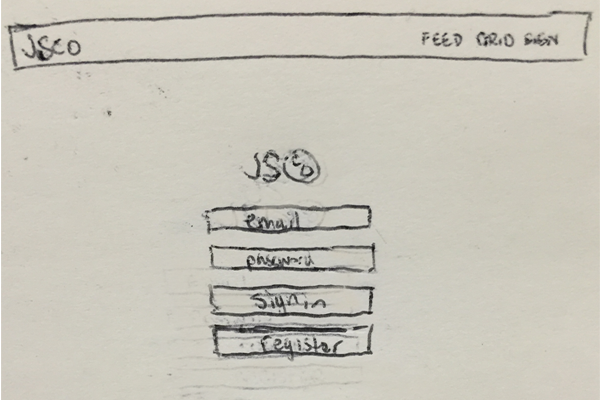 JSCO
FEED GRID SIGN
JSCO
email
password
Signin
register